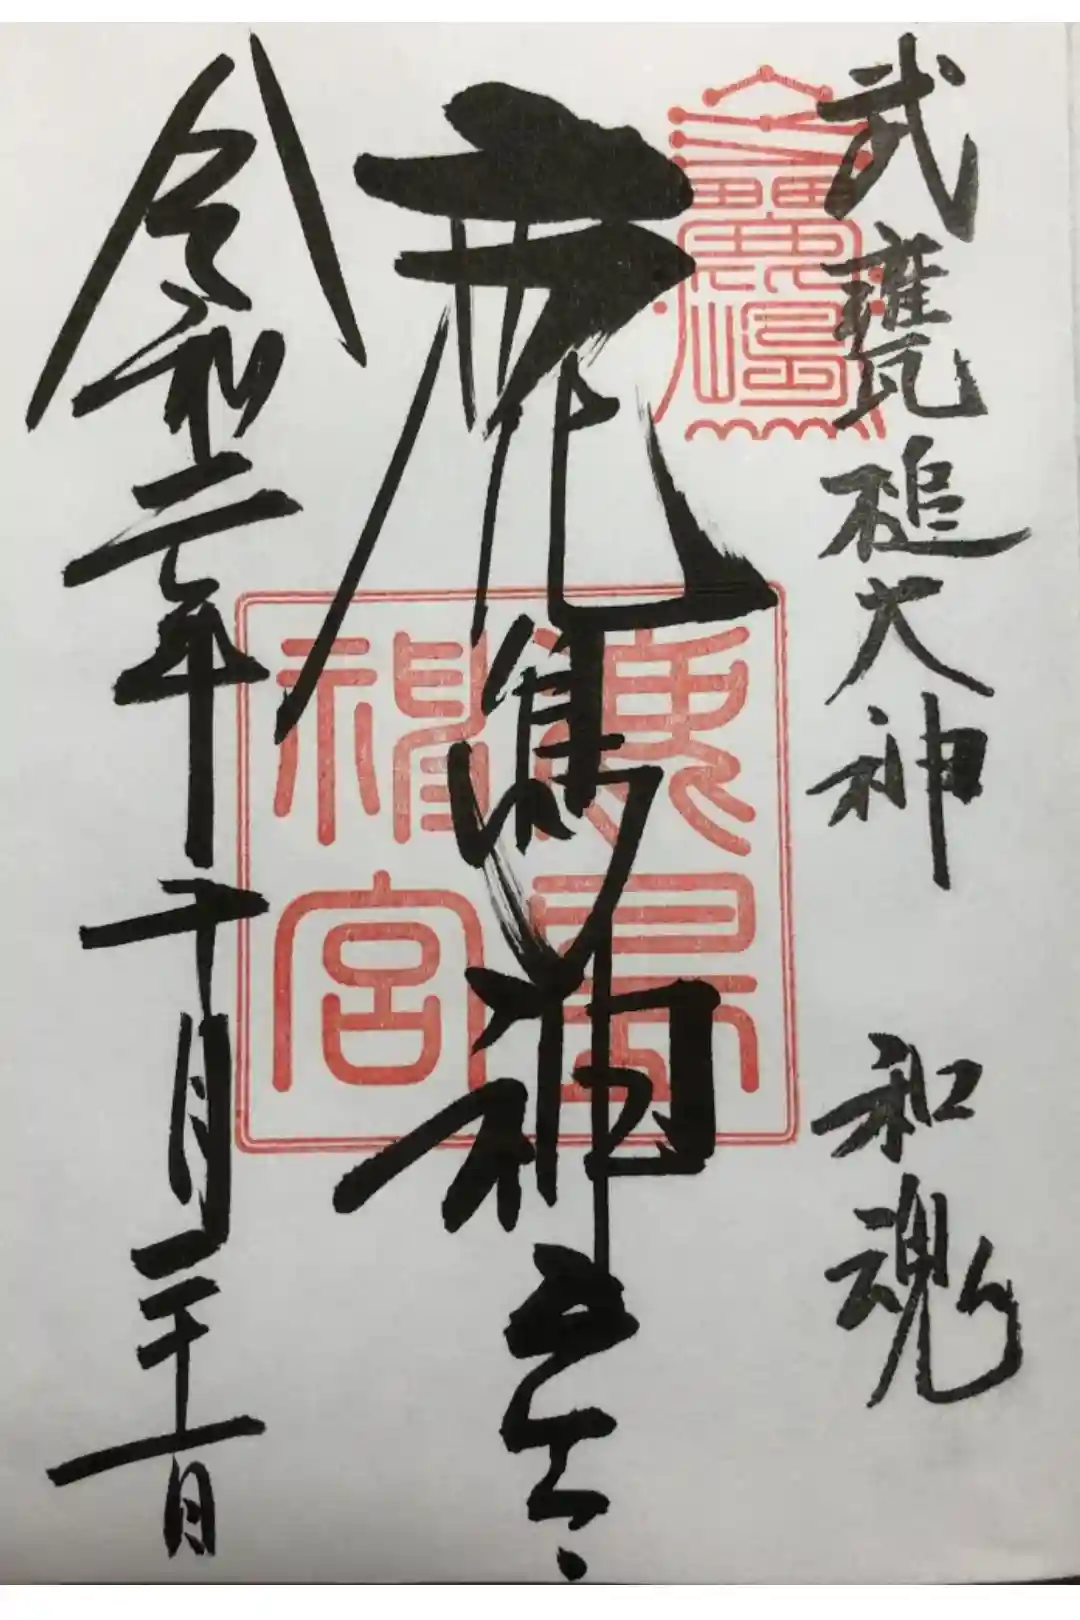 武甕槌大神 和魂
鹿島神宮
令和二年十月二十一日
鹿島
神宮